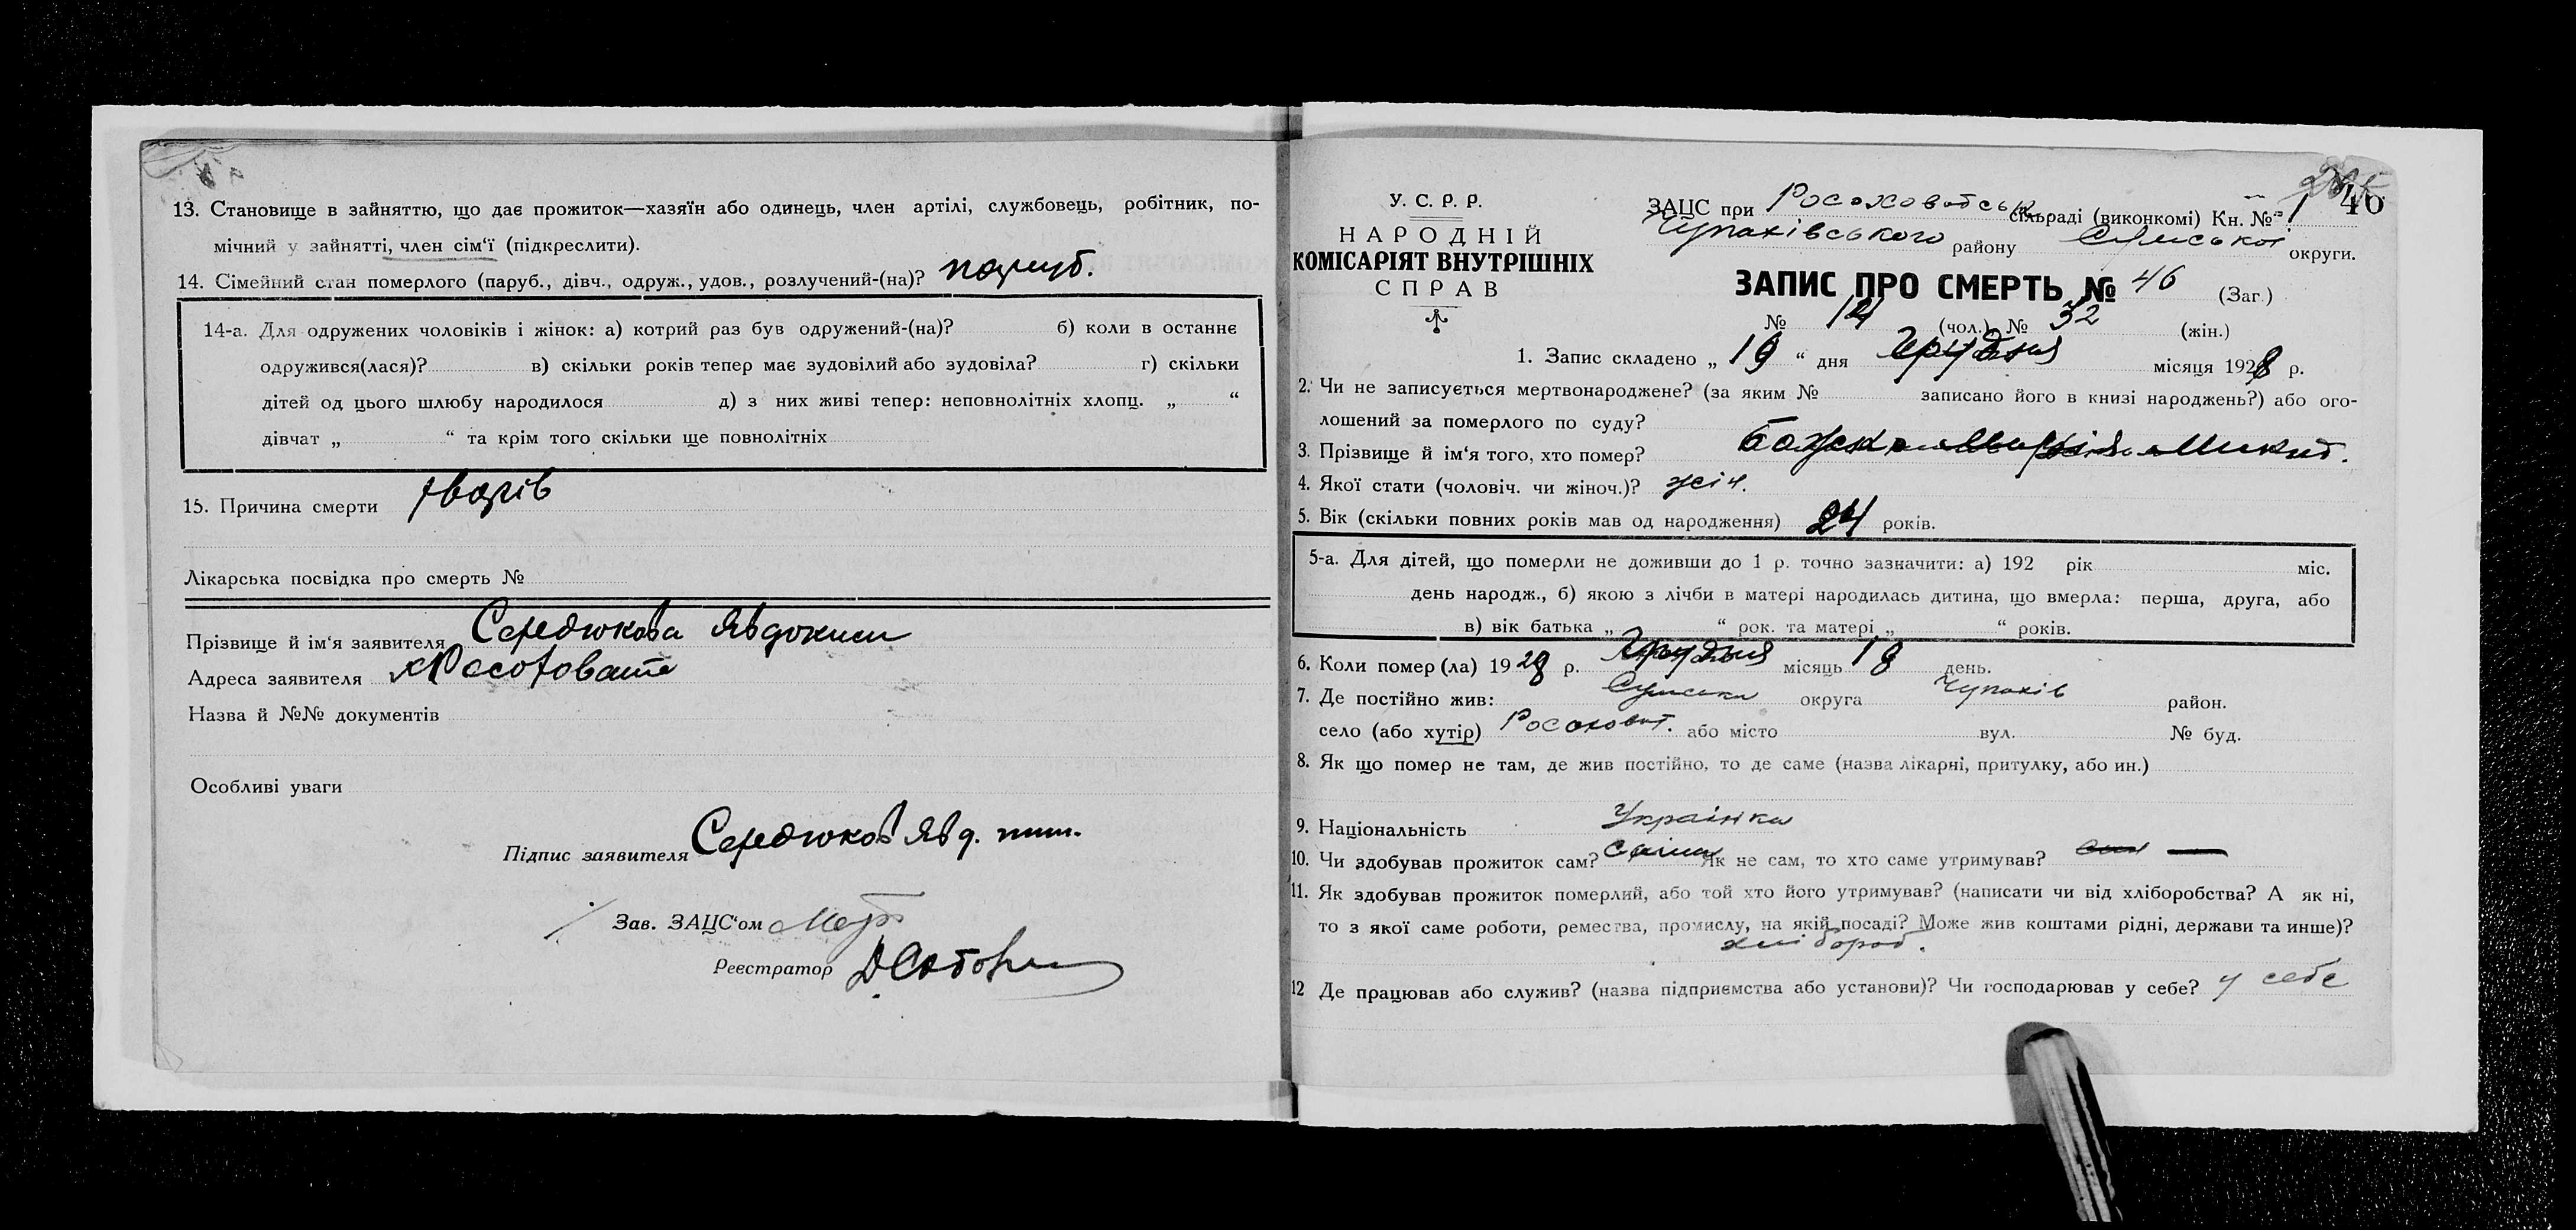 13. Становище в зайняттю, що дає прожиток—хазяїн або одинець, член артілі, службовець, робітник, по-
мічний у зайнятті, член сім'ї (підкреслити).
14. Сімейний стан померлого (паруб., дівч., одруж., удов., розлучений-(на)? паруб.
14-а. Для одружених чоловіків і жінок: а) котрий раз був одружений-(на)? б) коли в останнє
одружився(лася)? в) скільки років тепер має зудовілий або зудовіла? г) скільки
дітей од цього шлюбу народилося д) з них живі тепер: неповнолітніх хлопц. „ “
дівчат „ “ та крім того скільки ще повнолітніх
15. Причина смерти хворів
Лікарська посвідка про смерть №
Прізвище й ім'я заявителя Середюкова Явдокии
Адреса заявителя х Росоховате
Назва й №№ документів
Особливі уваги
Підпис заявителя Середюков Явд.
Зав. ЗАЦС'ом
Реєстратор
У. С. Р. Р.
НАРОДНІЙ
КОМІСАРІЯТ ВНУТРІШНІХ
СПРАВ
46
ЗАЦС при Росоховатськ сільраді (виконкомі) Кн. № 1
Чупахівського району Сумської округи.
ЗАПИС ПРО СМЕРТЬ № 46 (Заг.)
№ 14 (чол.) № 32 (жін.)
1. Запис складено „ 19 “ дня Грудня місяця 1928 р.
2. Чи не записується мертвонароджене? (за яким № записано його в книзі народжень?) або ого-
лошений за померлого по суду?
3. Прізвище й ім'я того, хто помер? Божко Марія Микит.
4. Якої стати (чоловіч. чи жіноч.)? жін.
5. Вік (скільки повних років мав од народження) 24 років.
5-а. Для дітей, що померли не доживши до 1 р. точно зазначити: а) 192 рік міс.
день народж., б) якою з лічби в матері народилась дитина, що вмерла: перша, друга, або
в) вік батька „ “ рок. та матері „ “ років.
6. Коли помер (ла) 1928 р. Грудня місяць 18 день.
7. Де постійно жив: Сумська округа Чупахів район.
село (або хутір) Росоховат. або місто вул. № буд.
8. Як що помер не там, де жив постійно, то де саме (назва лікарні, притулку, або ин.)
9. Національність Українка
10. Чи здобував прожиток сам? Сама Як не сам, то хто саме утримував? —
11. Як здобував прожиток померлий, або той хто його утримував? (написати чи від хліборобства? А як ні,
то з якої саме роботи, ремества, промислу, на якій посаді? Може жив коштами рідні, держави та инше)?
хлібороб.
12 Де працював або служив? (назва підприємства або установи)? Чи господарював у себе? у себе